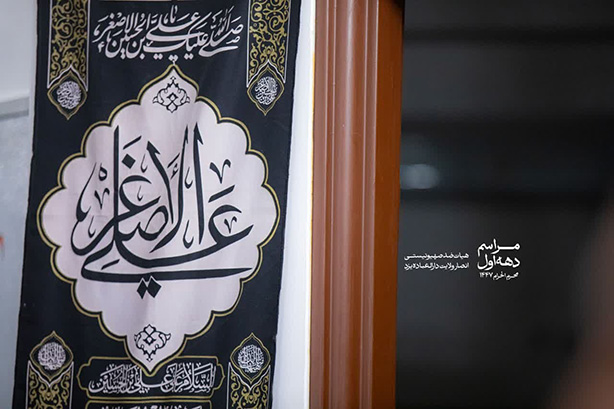 صلی الله علیک یا علی بن الحسین الاصغر
علی الاصغر
السلام علی علی بن الحسین
مراسم
دهه اول
محرم الحرام ۱۴۴۷
هیات ضد صهیونیستی
انصار ولایت دارالعباده یزد